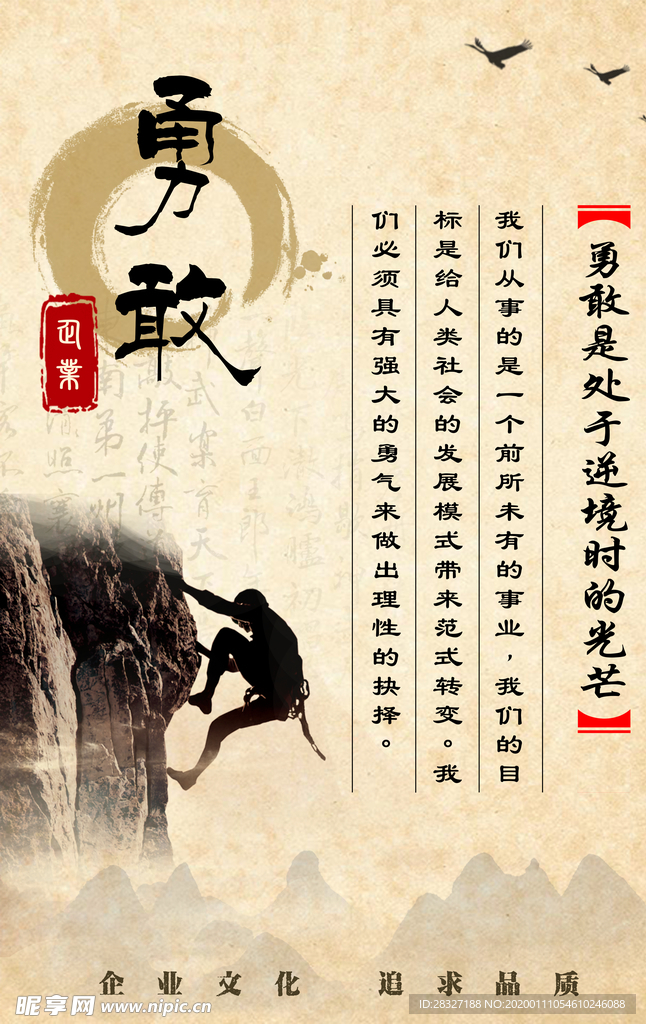 勇敢
企業
【勇敢是处于逆境时的光芒】
我们从事的是一个前所未有的事业，我们的目
标是给人类社会的发展模式带来范式转变。我
们必须具有强大的勇气来做出理性的抉择。
企业文化 追求品质
昵享网 www.nipic.cn
ID:28327188 NO:20200111054610246088